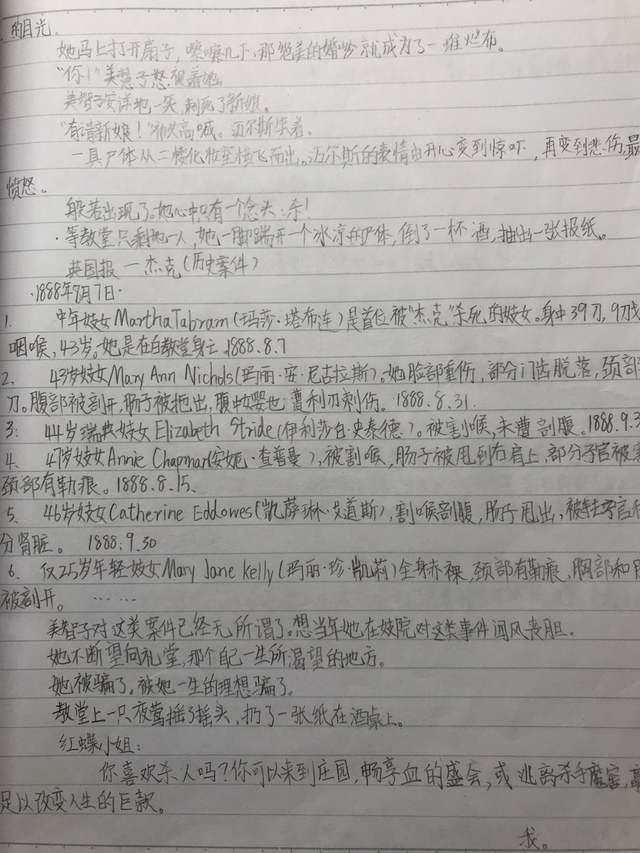 的目光。
她马上打开扇子，嚓嚓几下，那绝美的婚纱就成为了一堆烂布。
“你！”美慧子怒狠着她。
美智子安详地一笑，刺死了新娘。
“有请新娘！”高喊。迈尔斯笑着。
一具尸体从二楼化妆室横飞而出。迈尔斯的表情由开心变到惊吓，再变到悲伤，最
愤怒。
般若出现了。她心中只有一个念头：杀！
等教堂只剩她一人，她一脚踹开一个冰凉的尸体，倒了一杯酒，抽出一张报纸。
英国报一杰克（历史案件）
·1888年7月7日·
1. 中年妓女Martha Tabram（玛莎·塔布连）是首位被“杰克”杀死的妓女。身中39刀，9刀
咽喉，43岁。她是在白教堂身亡1888.8.7
2. 43岁妓女Mary Ann Nichols（玛丽·安·尼古拉斯）。她脸部重伤，部分门齿脱落，颈部
刀。腹部被剖开，肠子被拖出，腹中女婴也遭利刀刺伤。1888.8.31.
3: 44岁瑞典妓女Elizabeth Stride（伊利莎白·史泰德）。被割喉，未遭剖腹。1888.9.3
4. 47岁妓女Annie Chapman（安妮·查普曼），被割喉，肠子被甩到右肩上，部分子宫被
颈部有勒痕。1888.8.15.
5. 46岁妓女Catherine Eddowes（凯萨琳·艾道斯），割喉剖腹，肠子甩出，被
分肾脏。 1888.9.30
6. 仅25岁年轻妓女Mary Jane Kelly（玛丽·珍·凯莉）全身赤裸，颈部有勒痕，胸部和
被剖开。……
美智子对这类案件已经无所谓了。想当年她在妓院对这类事件闻风丧胆。
她不断望向礼堂，那个自己一生所渴望的地方。
她被骗了，被她一生的理想骗了。
教堂上一只夜莺摇了摇头，扔了一张纸在酒桌上。
红蝶小姐：
你喜欢杀人吗？你可以来到庄园，畅享血的盛会，或逃离杀手魔窟，
足以改变人生的巨款。
我。